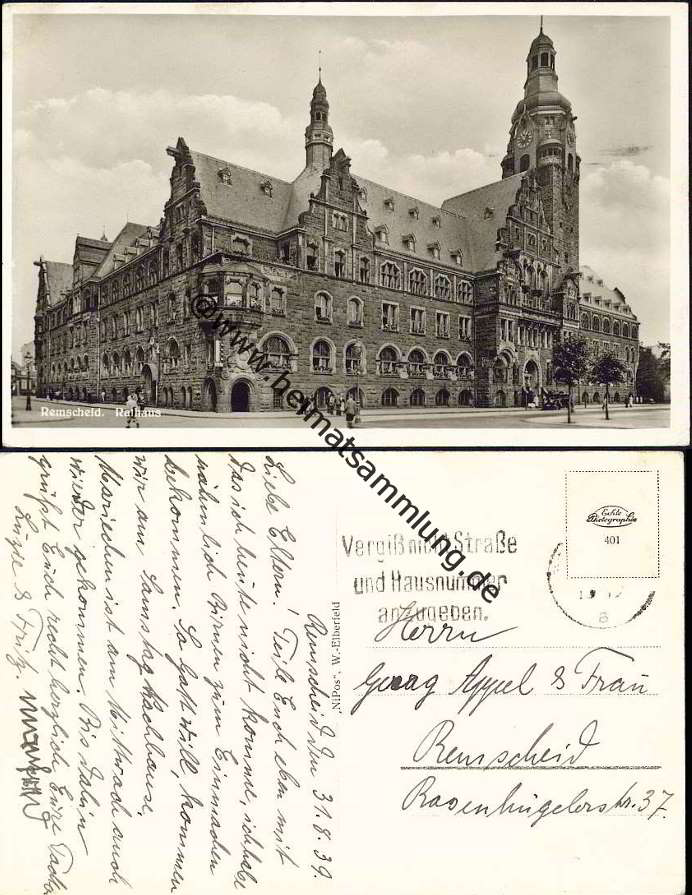 Remscheid. Rathaus
© www.heimatsammlung.de
Echte
Photographie
401
Vergiß nicht Straße
und Hausnummer
anzugeben.
a
Herrn
Georg Appel & Frau
Remscheid
Rosenhügelerstr. 37.
"NiPos", W.-Elberfeld
Remscheid den 31.8.39.
Liebe Eltern! Teile Euch eben mit
das ich heute nicht komme, ich habe
nähmlich Birnen zum Einmachen
bekommen. So Gott will, kommen
wir am Samstag nachhause,
Mariechen ist am Mittwoch auch
wieder gekommen. Bis dahin
grüßt Euch recht herzlich Eure Tochter
& Fritz.